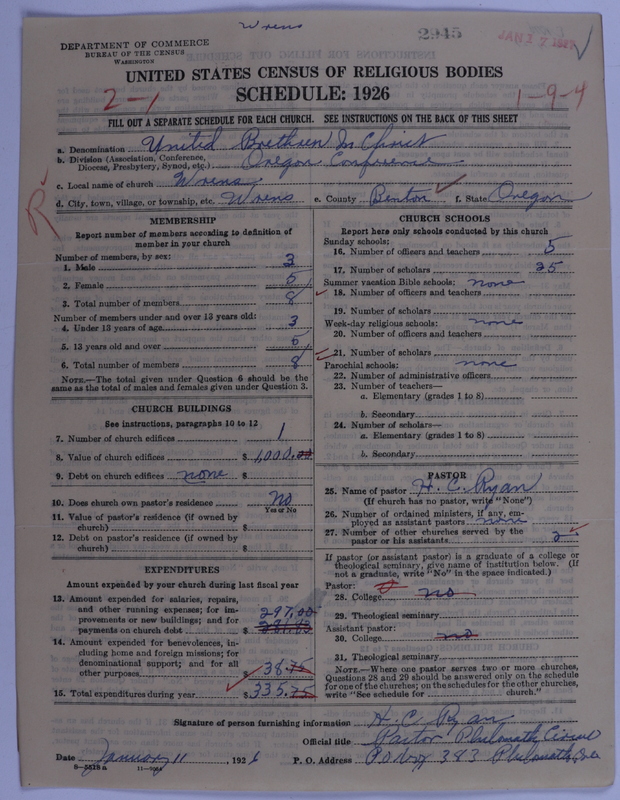 Wrens
2945
JAN 17 1927
DEPARTMENT OF COMMERCE
BUREAU OF THE CENSUS
WASHINGTON
UNITED STATES CENSUS OF RELIGIOUS BODIES
SCHEDULE: 1926
2-1
1-9-4
FILL OUT A SEPARATE SCHEDULE FOR EACH CHURCH. SEE INSTRUCTIONS ON THE BACK OF THIS SHEET
a. Denomination United Brethren In Christ
b. Division (Association, Conference, Diocese, Presbytery, Synod, etc.) Oregon Conference
c. Local name of church Wrens
d. City, town, village, or township, etc. Wrens e. County Benton f. State Oregon
R
MEMBERSHIP
Report number of members according to definition of
member in your church
Number of members, by sex:
1. Male 3
2. Female 5
3. Total number of members 8
Number of members under and over 13 years old:
4. Under 13 years of age 3
5. 13 years old and over 5
6. Total number of members 8
NOTE.—The total given under Question 6 should be the
same as the total of males and females given under Question 3.
CHURCH BUILDINGS
See instructions, paragraphs 10 to 12
7. Number of church edifices 1
8. Value of church edifices $ 1,000.00
9. Debt on church edifices none $
10. Does church own pastor's residence No
Yes or No
11. Value of pastor's residence (if owned by
church) $
12. Debt on pastor's residence (if owned by
church) $
EXPENDITURES
Amount expended by your church during last fiscal year
13. Amount expended for salaries, repairs,
and other running expenses; for im-
provements or new buildings; and for 297.00
payments on church debt $
14. Amount expended for benevolences, in-
cluding home and foreign missions; for
denominational support; and for all
other purposes $ 38.75
15. Total expenditures during year $ 335.75
CHURCH SCHOOLS
Report here only schools conducted by this church
Sunday schools:
16. Number of officers and teachers 5
17. Number of scholars 35
Summer vacation Bible schools: none
18. Number of officers and teachers
19. Number of scholars
Week-day religious schools: none
20. Number of officers and teachers
21. Number of scholars
Parochial schools: none
22. Number of administrative officers
23. Number of teachers—
a. Elementary (grades 1 to 8)
b. Secondary
24. Number of scholars—
a. Elementary (grades 1 to 8)
b. Secondary
PASTOR
25. Name of pastor H. C. Ryan
(If church has no pastor, write "None")
26. Number of ordained ministers, if any, em-
ployed as assistant pastors none
27. Number of other churches served by the
pastor or his assistants 2
If pastor (or assistant pastor) is a graduate of a college or
theological seminary, give name of institution below. (If
not a graduate, write "No" in the space indicated.)
Pastor:
28. College no
29. Theological seminary
Assistant pastor:
30. College no
31. Theological seminary
NOTE.—Where one pastor serves two or more churches,
Questions 28 and 29 should be answered only on the schedule
for one of the churches; on the schedules for the other churches,
write "See schedule for church."
Signature of person furnishing information H. C. Ryan
Official title Pastor Philomath Circuit
Date January 11, 1926 P. O. Address P O Box 383 Philomath, Ore
8—5518 a